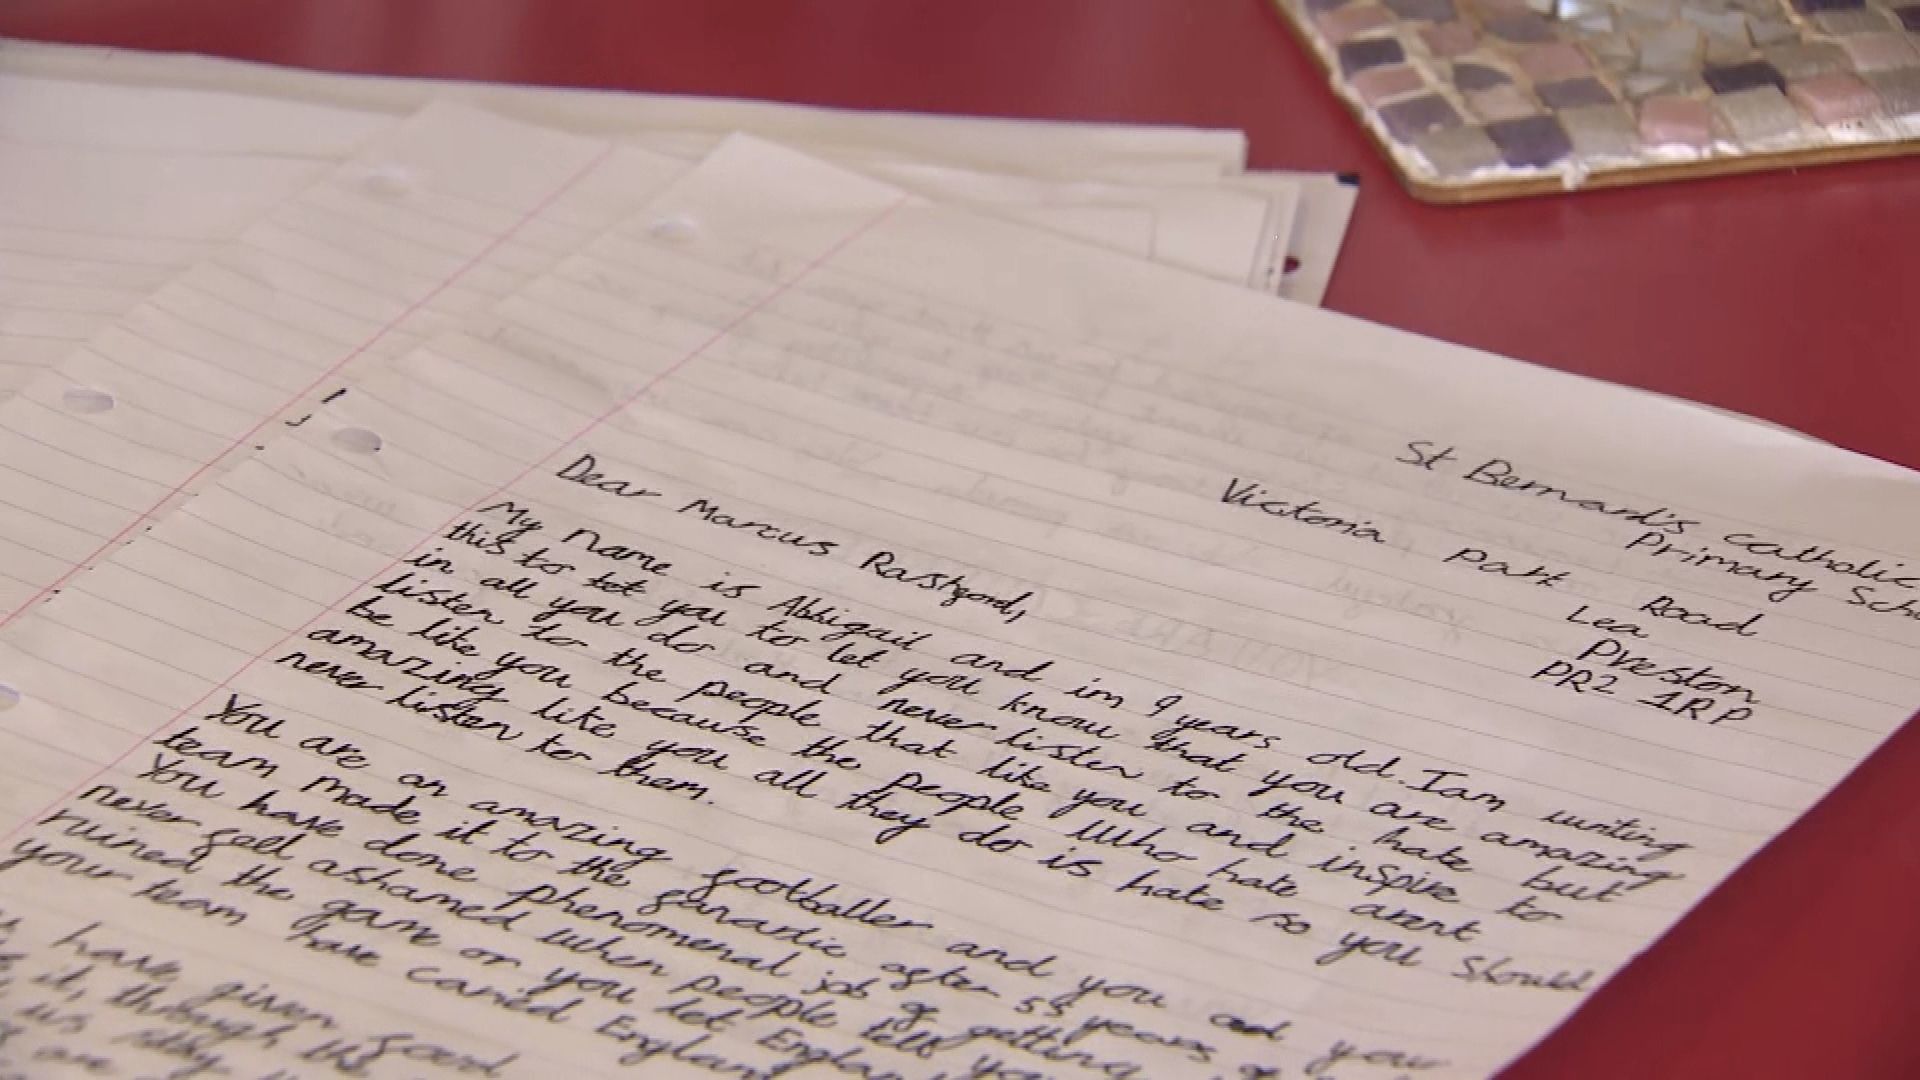 St Bernard's Catholic
Primary
Victoria Park Road
Lea
Preston
PR2 1RP
Dear Marcus Rashford,
My name is Abbigail and im 9 years old. I am writing
this to to let you know that you are amazing
in all you do and never listen to the hate but
listen to the people that like you and inspire to
be like you because the people who hate arent
amazing like you all they do is hate so you should
never listen to them.
You are an amazing footballer and you and your
team made it to the after 55 years
You have done phenomenal job of getting
never feel ashamed when people tell
ruined the game or you let
your team have carried England
have given good
it, through the
us
are